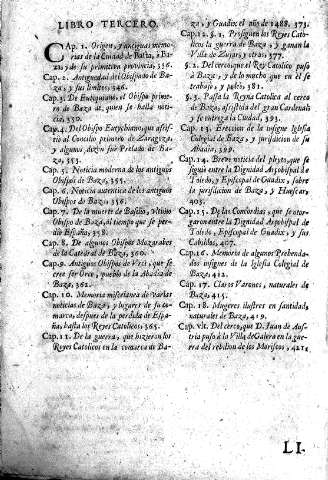 LIBRO TERCERO.
CAp. 1. Origen, y antiguas memo-
rias de la Ciudad de Basta, ò Ba-
za, y de su primitiva provincia, 336.
Cap. 2. Antiguedad del Obispado de Ba-
za, y sus limites, 346.
Cap. 3. De Eutiquiano, el Obispo prime-
ro de Baza de quien se halla noti-
cia, 350.
Cap. 4. Del Obispo Eutychiano, que assis-
tiò al Concilio primero de Zaragoza,
y algunos dizen fue Prelado de Ba-
za, 353.
Cap. 5. Noticia moderna de los antiguos
Obispos de Baza, 355.
Cap. 6. Noticia autentica de los antiguos
Obispos de Baza, 356.
Cap. 7. De la muerte de Basilio, ultimo
Obispo de Baza, al tiempo que se per-
dio España, 358.
Cap. 8. De algunos Obispos Mozarabes
de la Catedral de Baza, 360.
Cap. 9. Antiguos Obispos de Vrci, que se
cree ser Orce, pueblo de la Abadia de
Baza, 362.
Cap. 10. Memoria miscelanea de varias
noticias de Baza, y lugares de su co-
marca, despues de la perdida de Espa-
ña, hasta los Reyes Catolicos, 365.
Cap. 11. De la guerra, que hizieron los
Reyes Catolicos en la comarca de Ba-
za, y Guadix el año de 1488. 373.
Cap. 12. §. 1. Prosiguen los Reyes Cato-
licos la guerra de Baza, y ganan la
Villa de Zujar, y otras, 377.
§. 2. Del cerco, que el Rey Catolico puso
à Baza, y de lo mucho que en èl se
trabajo, y peleò, 381.
§. 3. Passa la Reyna Catolica al cerco
de Baza, assistida del gran Cardenal:
y se entrega la Ciudad, 393.
Cap. 13. Ereccion de la insigne Iglesia
Colegial de Baza, y jurisdicion de su
Abadia, 399.
Cap. 14. Breve noticia del pleyto, que se
siguio entre la Dignidad Arçobispal de
Toledo, y Episcopal de Guadix, sobre
la jurisdicion de Baza, y Huescar,
403.
Cap. 15. De las Concordias, que se otor-
garon entre la Dignidad Arçobispal de
Toledo, Episcopal de Guadix, y sus
Cabildos, 407.
Cap. 16. Memoria de algunos Prebenda-
dos insignes de la Iglesia Colegial de
Baza, 412.
Cap. 17. Claros Varones, naturales de
Baza, 415.
Cap. 18. Mugeres ilustres en santidad,
naturales de Baza, 419.
Cap. vlt. Del cerco, que D. Juan de Aus-
tria puso à la Villa de Galera en la gue-
rra del rebelion de los Moriscos, 421.
LI-